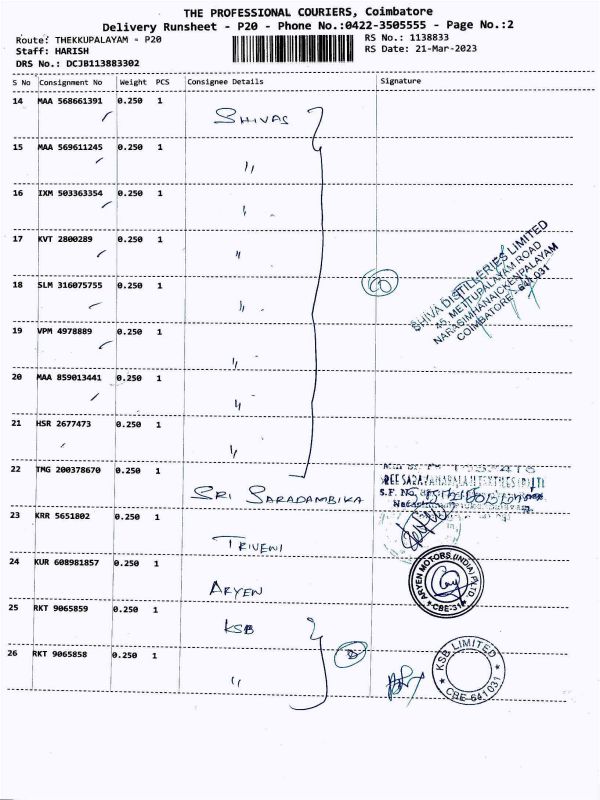 THE PROFESSIONAL COURIERS, Coimbatore
Delivery Runsheet - P20 - Phone No.:0422-3505555 - Page No.:2
Route: THEKKUPALAYAM - P20
RS No.: 1138833
Staff: HARISH
RS Date: 21-Mar-2023
DRS No.: DCJB113883302
S No Consignment No Weight PCS Consignee Details Signature
14 MAA 568661391 0.250 1 SHIVAS
15 MAA 569611245 0.250 1 "
16 IXM 503363354 0.250 1 "
17 KVT 2800289 0.250 1 "
18 SLM 316075755 0.250 1 "
19 VPM 4978889 0.250 1 "
20 MAA 859013441 0.250 1 "
21 HSR 2677473 0.250 1 "
SHIVA DISTILLERIES LIMITED
45, METTUPALAYAM ROAD
NARASIMHANAICKENPALAYAM
COIMBATORE - 641 031
22 TMG 200378670 0.250 1 SRI SARADAMBIKA
S.F. No.
23 KRR 5651802 0.250 1 TRIVENI
24 KUR 608981857 0.250 1 ARYEN
ARYEN MOTORS (INDIA) P LTD.
* CBE-31 *
25 RKT 9065859 0.250 1 KSB
26 RKT 9065858 0.250 1 "
KSB LIMITED
* CBE-641 031 *